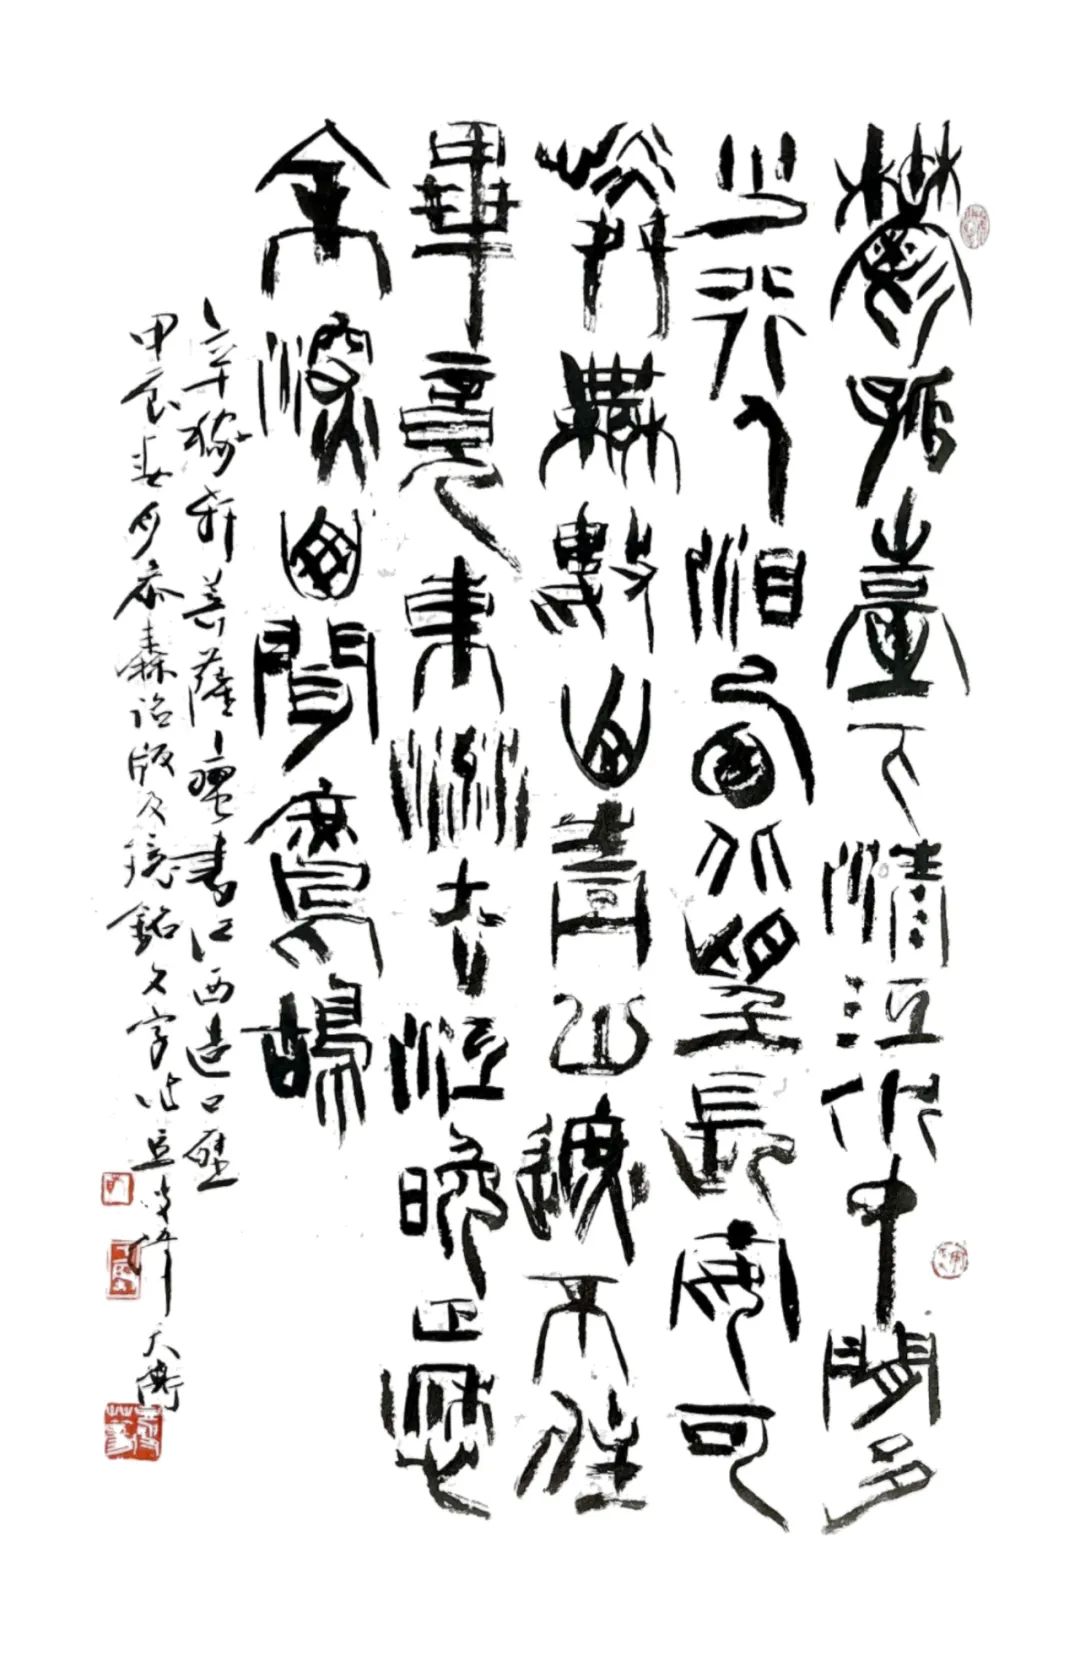 鬱孤臺下清江水中間多
少行人淚西北望長安可
憐無數山青山遮不住
畢竟東流去江晚正愁
余深山聞鷓鴣
辛稼軒菩薩蠻書江西造口壁
甲辰春月參秦詔版及鏡銘文字 天衡